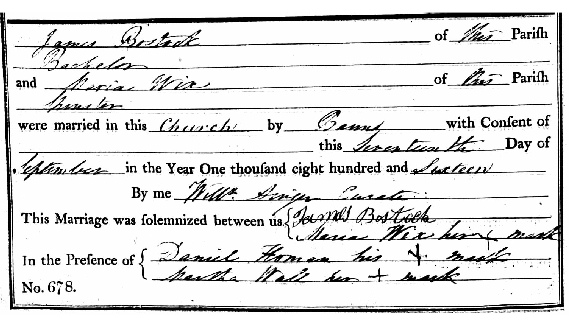 James Bostock of this Parish
Bachelor
and Maria Wix of this Parish
Spinster
were married in this Church by Banns with Consent of
this Seventeenth Day of
September in the Year One thousand eight hundred and Sixteen
By me Willm. Singer Curate
This Marriage was solemnized between us { James Bostock
Maria Wix her + mark
In the Presence of { Daniel Homan his + mark
Martha Wall her + mark
No. 678.